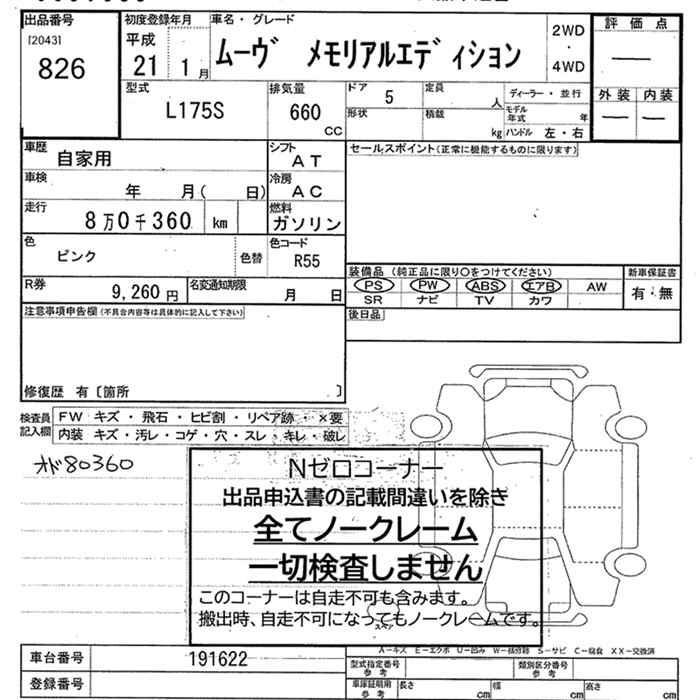 出品番号
[2043]
826
初度登録年月
平成
21 1 月
車名・グレード
ムーヴ メモリアルエディション
2WD
・
4WD
評価点
—
外装 内装
— —
型式
L175S
排気量
660
CC
ドア 5
定員 人
形状
積載 kg
ディーラー・並行
モデル年式 年
ハンドル 左・右
車歴 自家用
シフト AT
車検 年 月( 日)
冷房 AC
走行 8万0千360 km
燃料 ガソリン
色 ピンク
色替
色コード R55
R券 9,260 円
名変通知期限 月 日
セールスポイント(正常に機能するものに限ります)
装備品 (純正品に限り○をつけてください)
新車保証書
PS PW ABS エアB AW
有・無
SR ナビ TV カワ
後日品
注意事項申告欄(不具合内容等は具体的に記入して下さい)
修復歴 有〔箇所 〕
検査員記入欄
FW キズ・飛石・ヒビ割・リペア跡・×要
内装 キズ・汚レ・コゲ・穴・スレ・キレ・破レ
オド80360
Nゼロコーナー
出品申込書の記載間違いを除き
全てノークレーム
一切検査しません
このコーナーは自走不可も含みます。
搬出時、自走不可になってもノークレームです。
スペア
A−キズ E−エクボ U−凹み W−板修跡 S−サビ C−腐食 XX−交換済
車台番号 191622
登録番号
型式指定番号 参考
類別区分番号 参考
車庫証明用 参考
長さ cm
幅 cm
高さ cm